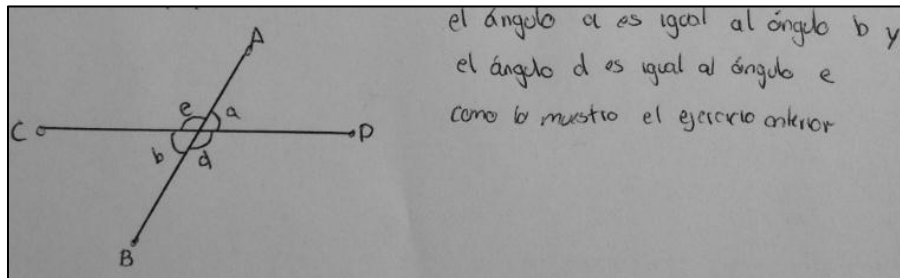 el ángulo a es igual al ángulo b y
el ángulo d es igual al ángulo e
como lo muestro el ejercicio anterior
A
e a
C D
b d
B